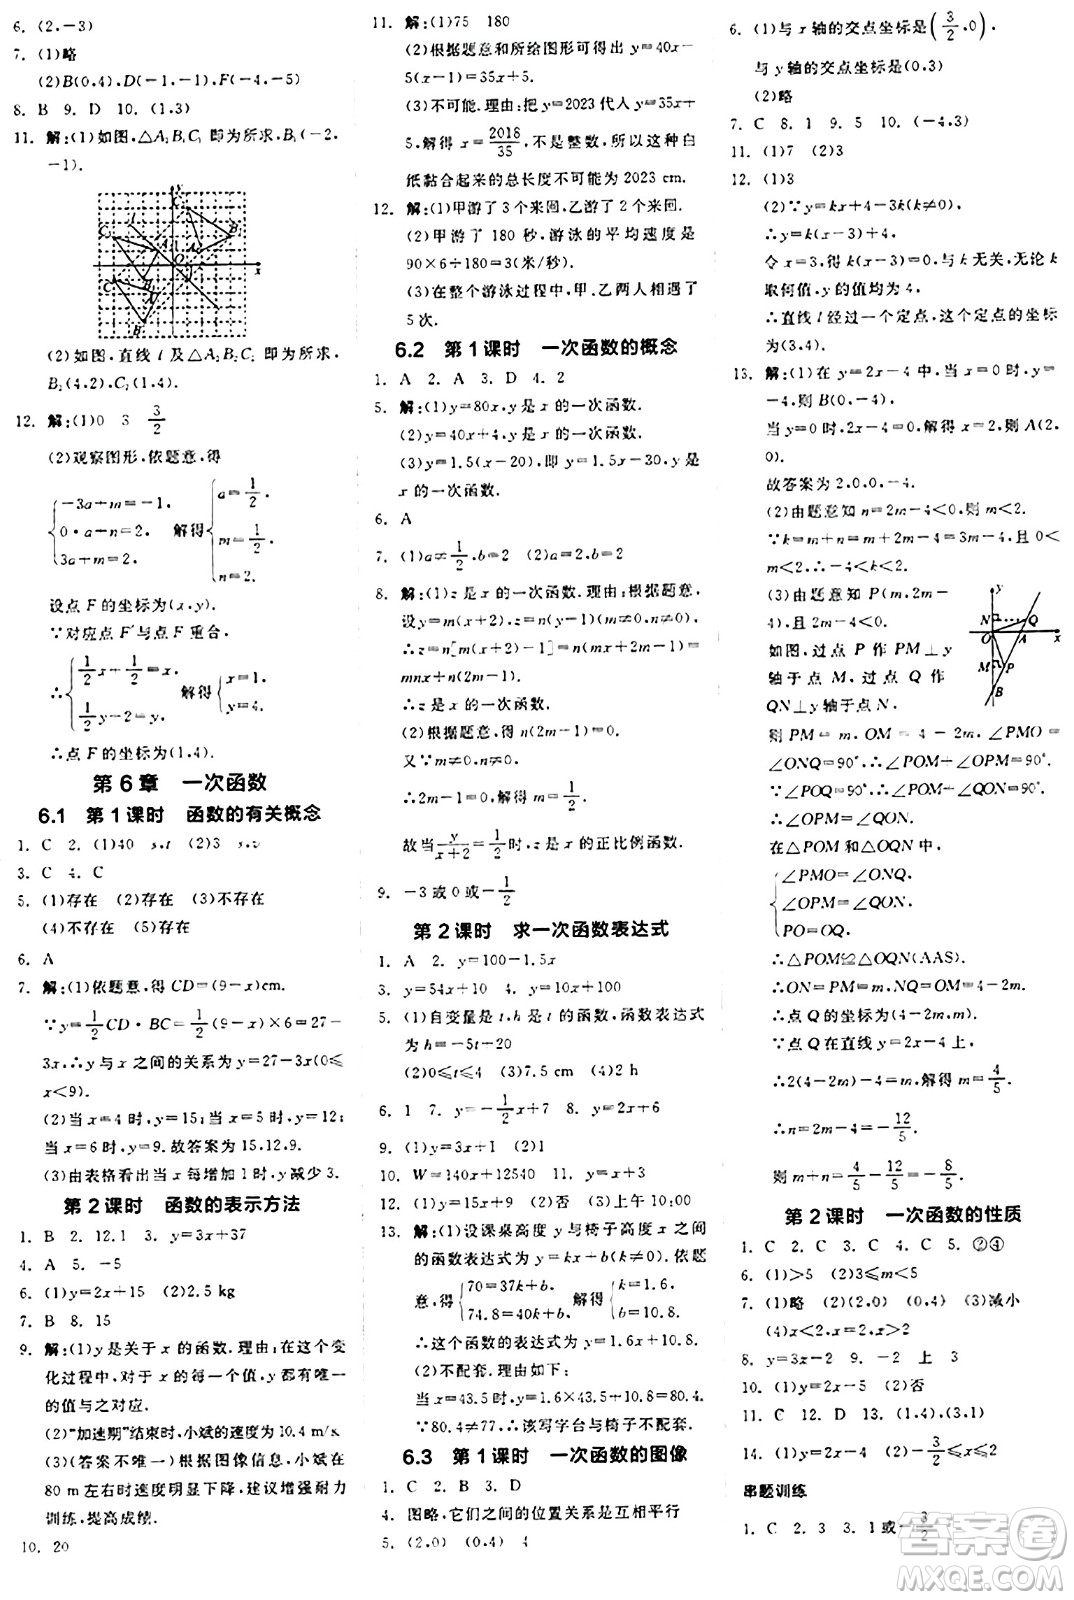 6. (2,-3)
7. (1)略
(2)B(0,4),D(-1,-1),F(-4,-5)
8. B 9. D 10. (1,3)
11. 解:(1)如图,△A₁B₁C₁ 即为所求,B₁(-2,
-1).
(2)如图,直线 l 及△A₂B₂C₂ 即为所求,
B₂(4,2),C₂(1,4).
12. 解:(1)0 3 3/2
(2)观察图形,依题意,得
{-3a+m=-1, 0·a+n=2, 3a+m=2, 解得 {a=1/2, m=1/2, n=2.
设点 F 的坐标为(x,y).
∵对应点 F′与点 F 重合,
∴{1/2x+1/2=x, 1/2y+2=y, 解得{x=1, y=4.
∴点 F 的坐标为(1,4).
第 6 章 一次函数
6.1 第 1 课时 函数的有关概念
1. C 2. (1)40 s,t (2)3 s,v
3. C 4. C
5. (1)存在 (2)存在 (3)不存在
(4)不存在 (5)存在
6. A
7. 解:(1)依题意,得 CD=(9-x)cm.
∵y=1/2CD·BC=1/2(9-x)×6=27-
3x,∴y 与 x 之间的关系为 y=27-3x(0≤
x<9).
(2)当 x=4 时,y=15;当 x=5 时,y=12;
当 x=6 时,y=9.故答案为 15,12,9.
(3)由表格看出当 x 每增加 1 时,y减少 3.
第 2 课时 函数的表示方法
1. B 2. 12.1 3. y=x+37
4. A 5. -5
6. (1)y=2x+15 (2)2.5 kg
7. B 8. 15
9. 解:(1)y 是关于 x 的函数.理由:在这个变
化过程中,对于 x 的每一个值,y 都有唯一
的值与之对应.
(2)“加速期”结束时,小斌的速度为 10.4 m/s.
(3)(答案不唯一)根据图像信息,小斌在
80 m 左右时速度明显下降,建议增强耐力
训练,提高成绩.
10. 20
11. 解:(1)75 180
(2)根据题意和所绘图形可得出 y=40x-
5(x-1)=35x+5.
(3)不可能.理由:把 y=2023 代人 y=35x+
5,解得 x=2018/35,不是整数,所以这些白
纸黏合起来的总长度不可能为 2023 cm.
12. 解:(1)甲游了 3 个来回,乙游了 2 个来回.
(2)甲游了 180 秒,游泳的平均速度是
90×6÷180=3(米/秒).
(3)在整个游泳过程中,甲、乙两人相遇了
5 次.
6.2 第 1 课时 一次函数的概念
1. A 2. A 3. D 4. 2
5. 解:(1)y=80x,y是 x 的一次函数.
(2)y=40x+4,y是 x 的一次函数.
(3)y=1.5(x-20),即 y=1.5x-30,y是
x 的一次函数.
6. A
7. (1)a≠1/2,b=2 (2)a=2,b=2
8. 解:(1)z 是 x 的一次函数.理由:根据题意,
设 y=m(x+2),z=ny-1(m≠0,n≠0),
∴z=n[m(x+2)]-1=mn(x+2)-1=
mnx+(2mn-1),
∴z 是 x 的一次函数.
(2)根据题意,得 2mn-1=0.
又∵m≠0,n≠0,
∴2m-1/n=0,∴m/1=1/2n,
故当 y/(x+2)=1/2时,z 是 x 的正比例函数.
9. -3 或 0 或-1/2
第 2 课时 求一次函数表达式
1. A 2. y=100-1.5x
3. y=54x+10 4. y=10x+100
5. (1)自变量是 t,h 是 t 的函数,函数表达式
为 h=-5t+20
(2)0≤t≤4 (3)7.5 cm (4)2 h
6. 1 7. y=-1/2x+7 8. y=2x+6
9. (1)y=3x+1 (2)1
10. W=140x+12540 11. y=x+3
12. (1)y=15x+9 (2)否 (3)上午 10:00
13. 解:(1)设课桌高度 y 与椅子高度 x 之间
的函数表达式为 y=kx+b(k≠0).依题
意,得{70=37k+b, 74.8=40k+b, 解得{k=1.6, b=10.8.
∴这个函数的表达式为 y=1.6x+10.8.
(2)不配套.理由如下:
当 x=43.5 时,y=1.6×43.5+10.8=80.4.
∵80.4≠77,∴该写字台与椅子不配套.
6.3 第 1 课时 一次函数的图像
1. C 2. B 3. D
4. 图略,它们之间的位置关系是互相平行
5. (2,0) (0,4) 4
6. (1)与 x 轴的交点坐标是(3/2,0),
与 y 轴的交点坐标是(0,3)
(2)略
7. C 8. 1 9. 5 10. (-4,3)
11. (1)7 (2)3
12. (1)3
(2)∵y=kx+4-3k(k≠0),
∴y=k(x-3)+4.
令 x=3,得 k(x-3)=0,与 k 无关,无论 k
取何值,y 的值均为 4.
∴直线 l 经过一个定点,这个定点的坐标
为(3,4).
13. 解:(1)在 y=2x-4 中,当 x=0 时,y=
-4,则 B(0,-4).
当 y=0时,2x-4=0,解得 x=2,则 A(2,
0).
故答案为 2,0,0,-4.
(2)由题意知 n=2m-4<0,则 m<2.
∵k=m+n=m+2m-4=3m-4,0<
m<2,∴-4<k<2.
(3)由题意知 P(m,2m-
4),2m-4<0.
如图,过点 P 作 PM⊥y
轴于点 M,过点 Q 作
QN⊥y轴于点 N,
则 PM=m,OM=4-2m,∠PMO=
∠QNO=90°,∠POM+∠OPM=90°.
∵∠POQ=90°,∴∠POM+∠QON=90°,
∴∠OPM=∠QON.
在△POM 和△OQN 中,
{∠PMO=∠ONQ, ∠OPM=∠QON, PO=OQ,
∴△POM≌△OQN(AAS).
∴ON=PM=m,QN=OM=4-2m,
∴点 Q 的坐标为(4-2m,m).
∵点 Q 在直线 y=2x-4 上,
∴2(4-2m)-4=m,解得 m=4/5,
∴n=2m-4=-12/5,
则 m+n=4/5-12/5=-8/5.
第 2 课时 一次函数的性质
1. C 2. C 3. C 4. C 5. ②④
6. (1)>5 (2)3≤m<5
7. (1)略 (2)(2,0) (0,4) (3)减小
(4)x<2 x>2
8. y=3x-2 9. - 上 3
10. (1)y=2x-5 (2)否
11. C 12. D 13. (1,4),(3,1)
14. (1)y=2x-4 (2)-3/2≤x≤2
串题训练
1. C 2. 3 3. 1 或-3/2
答案圈
MXQE.COM